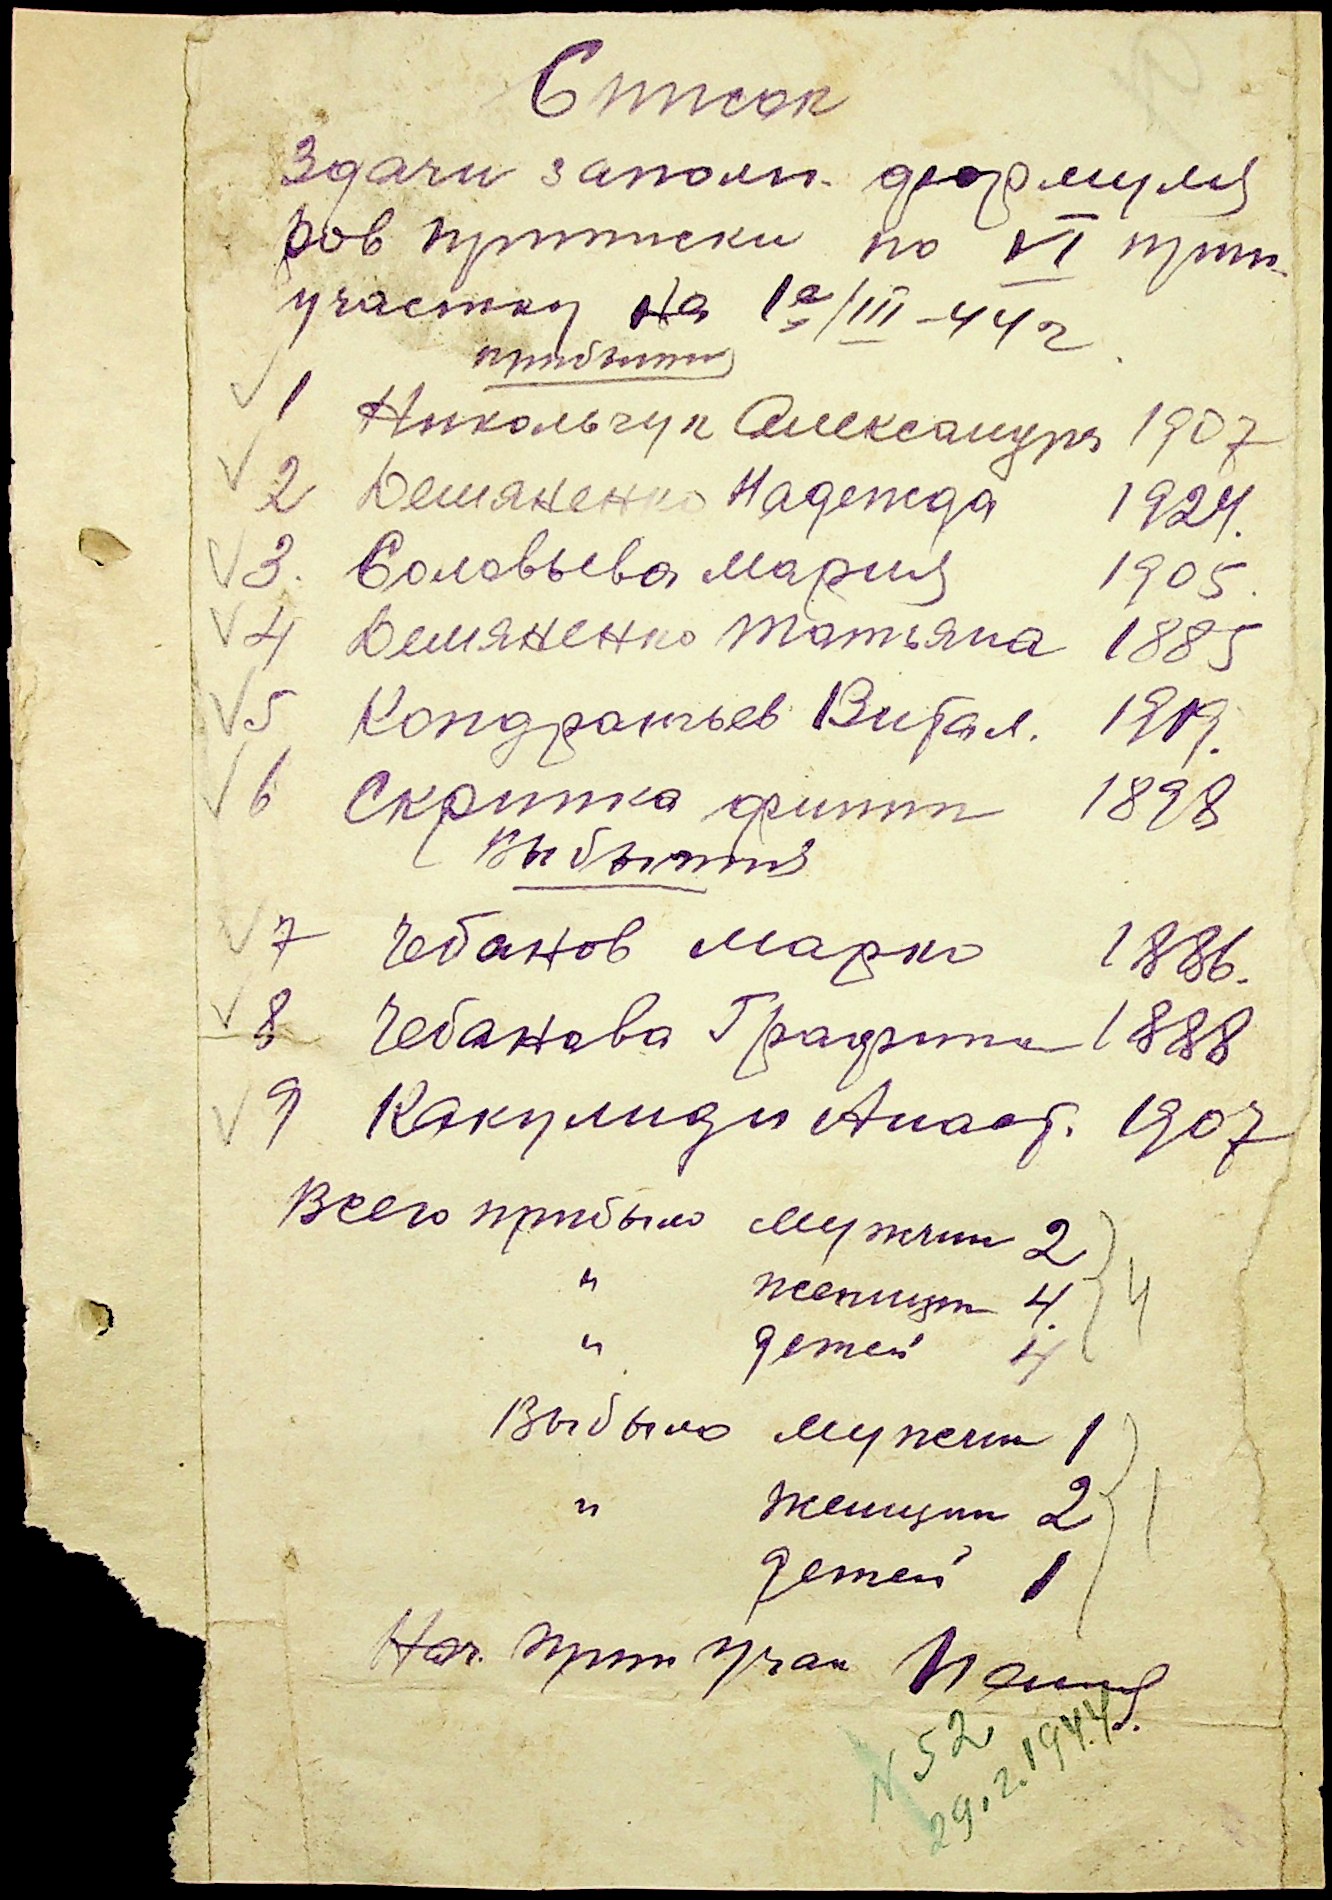 Список
Здачи заполн. формуля
ров прописки по VI проп.
участку на 1е/III-44 г.
прибытия
1 Никольчук Александра 1907
2 Демяненко Надежда 1924.
3. Соловьева Мария 1905.
4 Демяненко Татьяна 1885
5 Кондратьев Витал. 1919.
6 Скрипка Филип 1898
Выбытия
7 Чебанов Марко 1886.
8 Чебанова Графина 1888
9 Какулиди Анаст. 1907
Всего прибыло мужчин 2
" женщин 4.
" детей 4
} 4
Выбыло мужчин 1
" женщин 2
детей 1
} 1
Нач. проп учас
N 52
29.2.1944